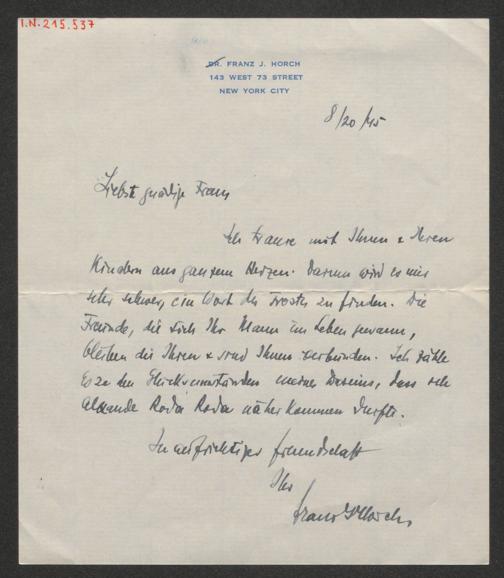 I.N. 215.537
DR. FRANZ J. HORCH
143 WEST 73 STREET
NEW YORK CITY
8/20/45
Liebste gnädige Frau,
Ich traure mit Ihnen & Ihren
Kindern aus ganzem Herzen. Darum wird es mir
sehr schwer, ein Wort des Trostes zu finden. Die
Freunde, die sich Ihr Mann im Leben gewann,
bleiben die Ihren & sind Ihnen verbunden. Ich zähle
es zu den Glücksumständen meines Daseins, dass ich
Alexander Roda Roda näher kommen durfte.
In aufrichtiger Freundschaft
Ihr
Franz J Horch